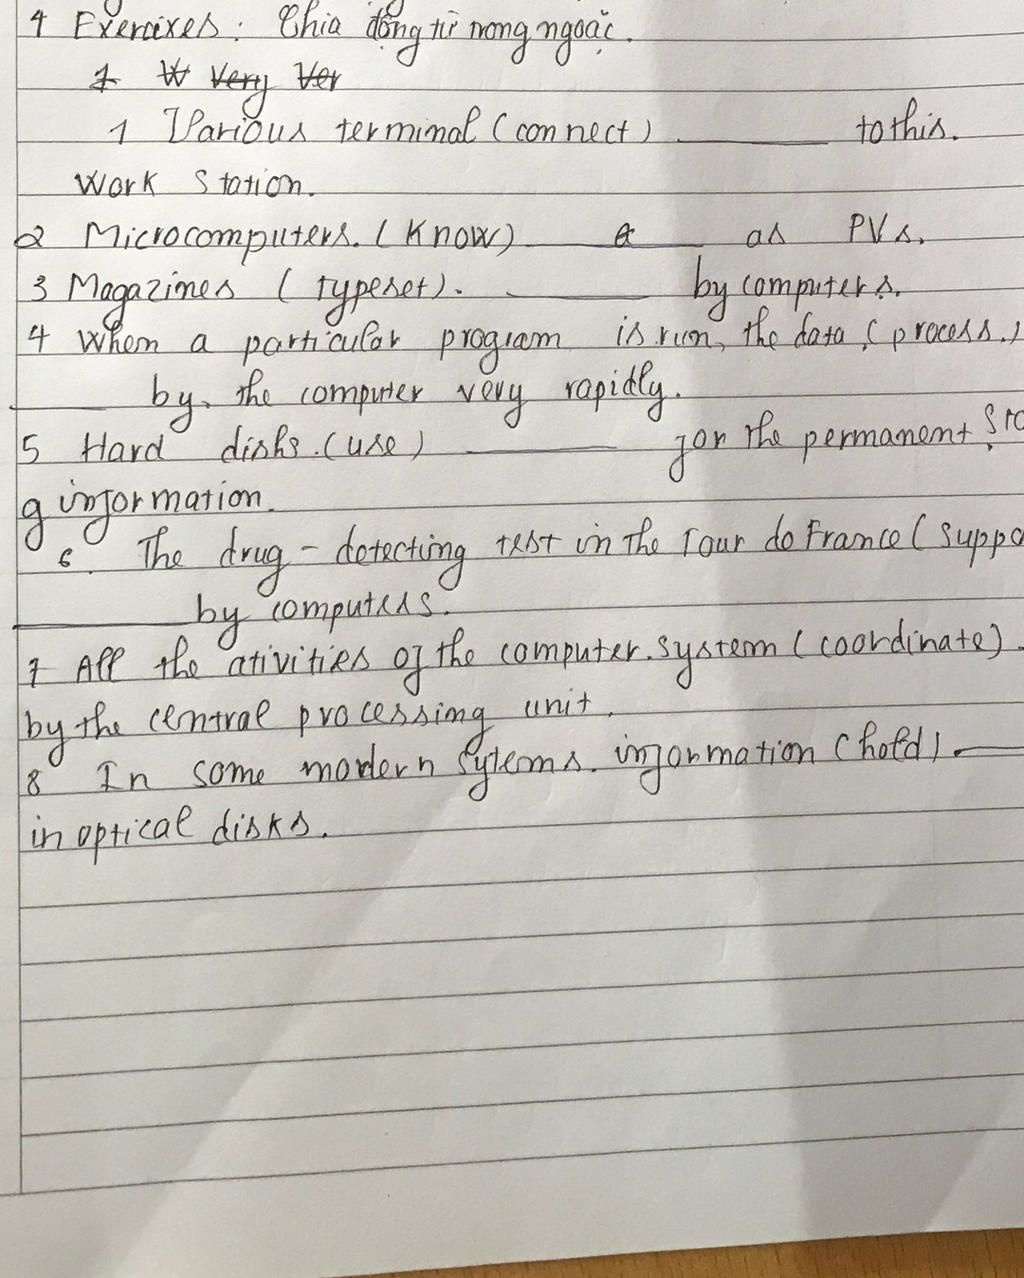 4 Exercixes: Chia động từ trong ngoặc.
1 W Very Ver
1 Various terminal (connect) ______ to this.
Work Station.
2 Microcomputers. (Know) ______ as PVs.
3 Magazines (typeset). ______ by computers.
4 When a particular program is run, the data, (process.)
______ by, the computer very rapidly.
5 Hard disks. (use) ______ for the permanent Sto
g information.
6. The drug - detecting test in the Tour do France (suppo
______ by computers.
7 All the ativities of the computer. system (coordinate).
by the central processing unit.
8 In some modern sytems. information (hold). ______
in optical disks.